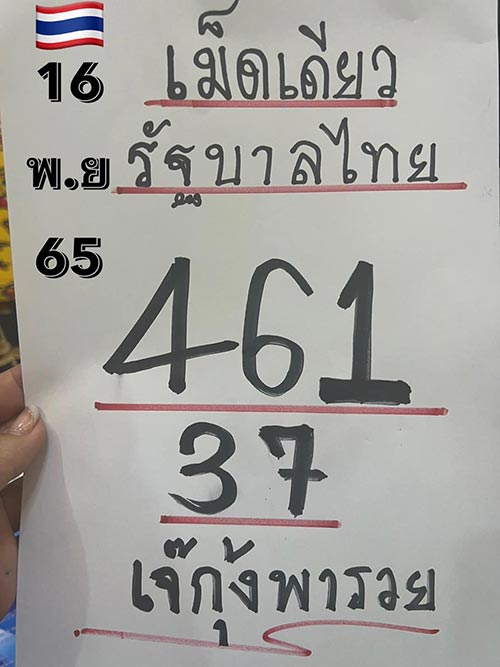 16
พ.ย
65
เม็ดเดียว
รัฐบาลไทย
461
37
เจ๊กุ้งพารวย